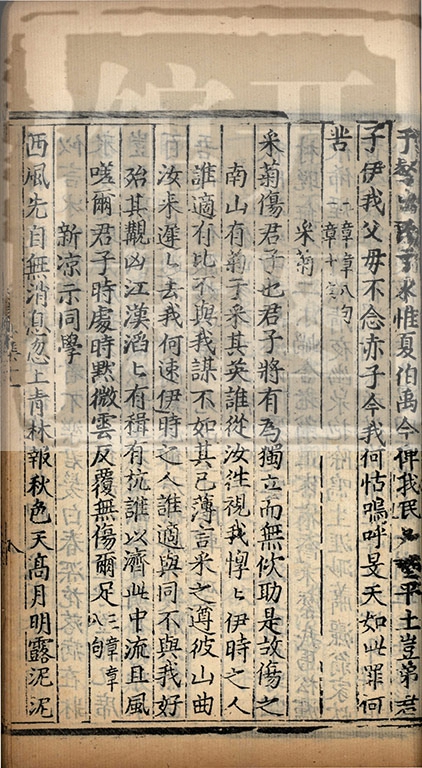 民方水惟夏伯禹今俾我民平土豈弟君
子伊我父毋不念赤子今我何怙鴞呼旻天如此罪何
辜
一章章八句
一章十言
采菊
采菊傷君子也君子將有為獨立而無佽助是故傷之
南山有菊于采其英誰從汝徃視我惸〻伊時之人
誰適有比不與我謀不如其已薄言采之遵彼山曲
汝来遲〻去我何速伊時之人誰適與同不與我好
殆其觀凶江漢滔〻有稹有杭誰以濟此中流且風
嗟爾君子時處時黙微雲反覆無傷爾足
三章章
八句
新凉示同學
西風先自無消息忽上青林報秋色天髙月明露泥泥